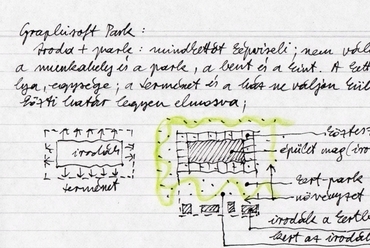 Graphisoft Park:
iroda + park: mindkettőt képviseli; nem vál
a munkahely és a park, a bent és a kint. A kett
egysége; a természet és a ház ne váljon kül
közti határ legyen elmosva;
irodák
természet
épület mag (iro
kert-park
növényzet
irodák a
kert az irodák